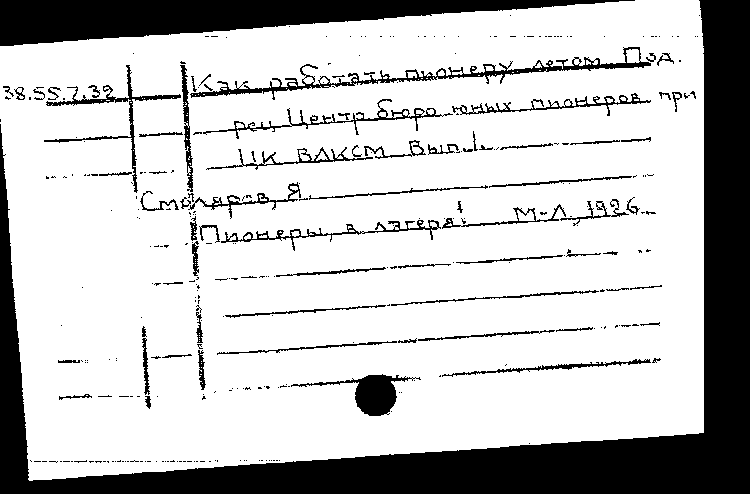 38.55.7.32 Как работать пионеру летом Под.
рец. Центр бюро юных пионеров при
ЦК ВЛКСМ Вып.1.
Смоляров, Я.
Пионеры, в лагеря! М-Л, 1926.